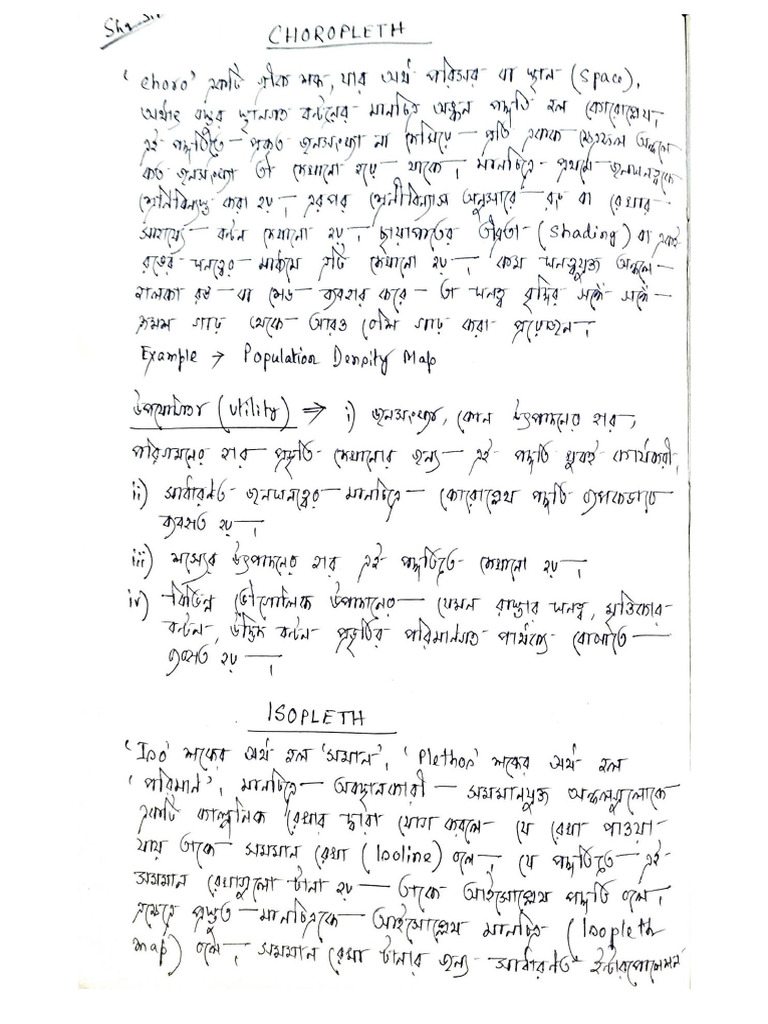 CHOROPLETH
'Choro' একটি গ্রীক শব্দ, যার অর্থ পরিসর বা স্থান (Space),
অর্থাৎ বস্তুর স্থানগত বন্টনের মানচিত্র অঙ্কন পদ্ধতি হল কোরোপ্লেথ।
এই পদ্ধতিতে প্রকৃত জনসংখ্যা না দেখিয়ে প্রতি একক ক্ষেত্রফল অঞ্চলে
কত জনসংখ্যা তা দেখানো হয়ে থাকে। মানচিত্রে প্রথমে জনঘনত্বকে
শ্রেণীবিন্যস্ত করা হয়। এরপর শ্রেণীবিন্যাস অনুসারে রঙ বা রেখার
সাহায্যে বন্টন দেখানো হয়। ছায়াপাতের তীব্রতা (Shading) বা একই
রঙের ঘনত্বের মাধ্যমে এটি দেখানো হয়। কম ঘনত্বযুক্ত অঞ্চলে
হালকা রঙ বা শেড ব্যবহার করে তা ঘনত্ব বৃদ্ধির সঙ্গে সঙ্গে
ক্রমশ গাঢ় থেকে আরও বেশি গাঢ় করা প্রয়োজন।
Example → Population Density Map
উপযোগিতা (Utility) ⇒ i) জনসংখ্যা, কোন উৎপাদনের হার,
পরিগমনের হার প্রভৃতি দেখানোর জন্য এই পদ্ধতি খুবই কার্যকরী।
ii) সাধারণত জনঘনত্বের মানচিত্রে কোরোপ্লেথ পদ্ধতি ব্যাপকভাবে
ব্যবহৃত হয়।
iii) শস্যের উৎপাদনের হার এই পদ্ধতিতে দেখানো হয়।
iv) বিভিন্ন ভৌগোলিক উপাদানের যেমন রাস্তার ঘনত্ব, মৃত্তিকার
বন্টন, উদ্ভিদ বন্টন প্রভৃতির পরিমাণগত পার্থক্য বোঝাতে
ব্যবহৃত হয়।
ISOPLETH
'Iso' শব্দের অর্থ হল 'সমান', 'Plethon' শব্দের অর্থ হল
'পরিমান'। মানচিত্রে অবস্থানকারী সমমানযুক্ত অঞ্চলগুলোকে
একটি কাল্পনিক রেখার দ্বারা যোগ করলে যে রেখা পাওয়া
যায় তাকে সমমান রেখা (Isoline) বলে। যে পদ্ধতিতে এই
সমমান রেখাগুলো টানা হয় তাকে আইসোপ্লেথ পদ্ধতি বলে।
এক্ষেত্রে প্রস্তুত মানচিত্রকে আইসোপ্লেথ মানচিত্র (Isopleth
map) বলে। সমমান রেখা টানার জন্য সাধারণত ইন্টারপোলেশন